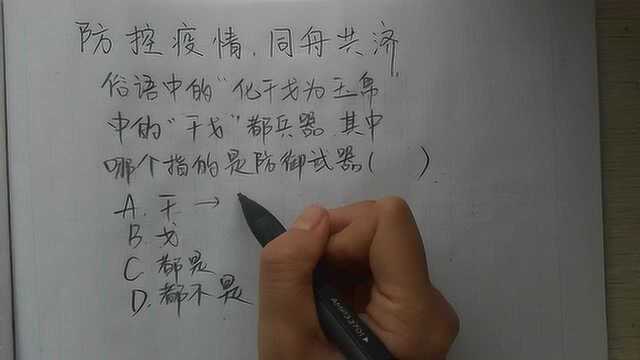 防控疫情,同舟共济
俗语中的"化干戈为玉帛"
中的"干戈"都兵器,其中
哪个指的是防御武器( )
A. 干 →
B. 戈
C 都是
D. 都不是